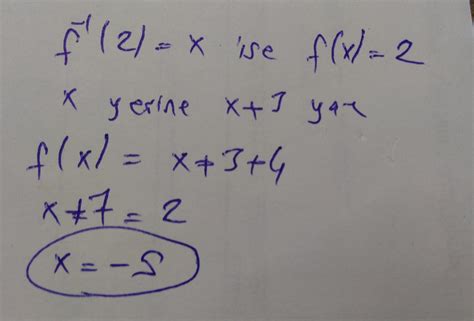 f⁻¹(2) = x ise f(x) = 2
x yerine x+3 yaz
f(x) = x+3+4
x+7 = 2
x = -5